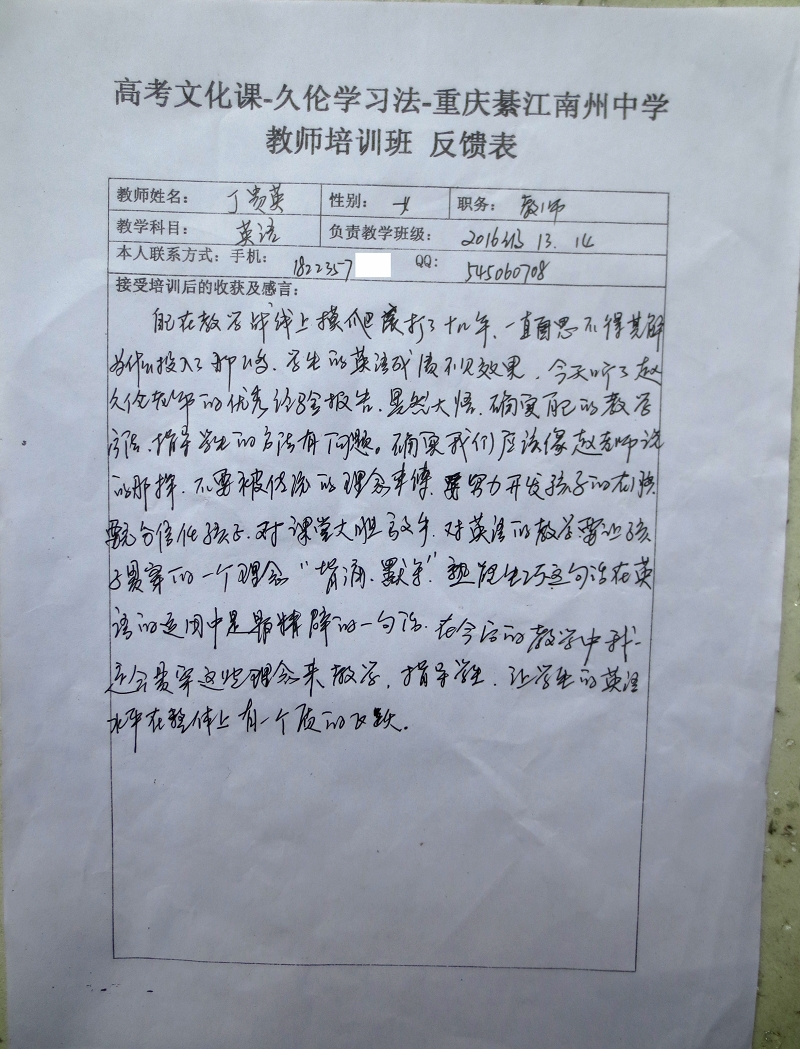 高考文化课-久伦学习法-重庆綦江南州中学
教师培训班 反馈表
教师姓名: 丁贵英 性别: 女 职务: 教师
教学科目: 英语 负责教学班级: 2016级 13. 14
本人联系方式: 手机: 1822357 QQ: 545060708
接受培训后的收获及感言:
在教学战线上摸爬滚打了十几年、一直百思不得其解
为什么投入了那么多、学生的英语成绩不见效果，今天听了赵
久伦老师的优秀经验报告、恍然大悟、确实的教学
方法、指导学生的方法有问题。确实我们应该像赵老师说
的那样、不要被传统的理念束缚、要努力开发孩子的右脑
要充分信任孩子、对课堂大胆放手、对英语的教学要让孩
子贯穿的一个理念“背诵、默写”熟能生巧这句话在英
语的运用中是最精辟的一句话、在今后的教学中我一
定会贯穿这些理念来教学，指导学生、让学生的英语
水平在整体上有一个质的飞跃。